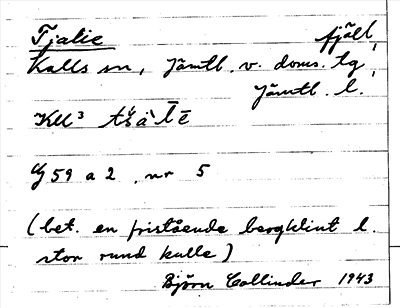 Tjalie fjäll,
Kalls sn, Jämtl. v. doms. lg,
Jämtl. l.
KU³ tśàlē
G 59 a 2, nr 5
(bet. en fristående bergklint l.
stor rund kulle)
Björn Collinder 1943